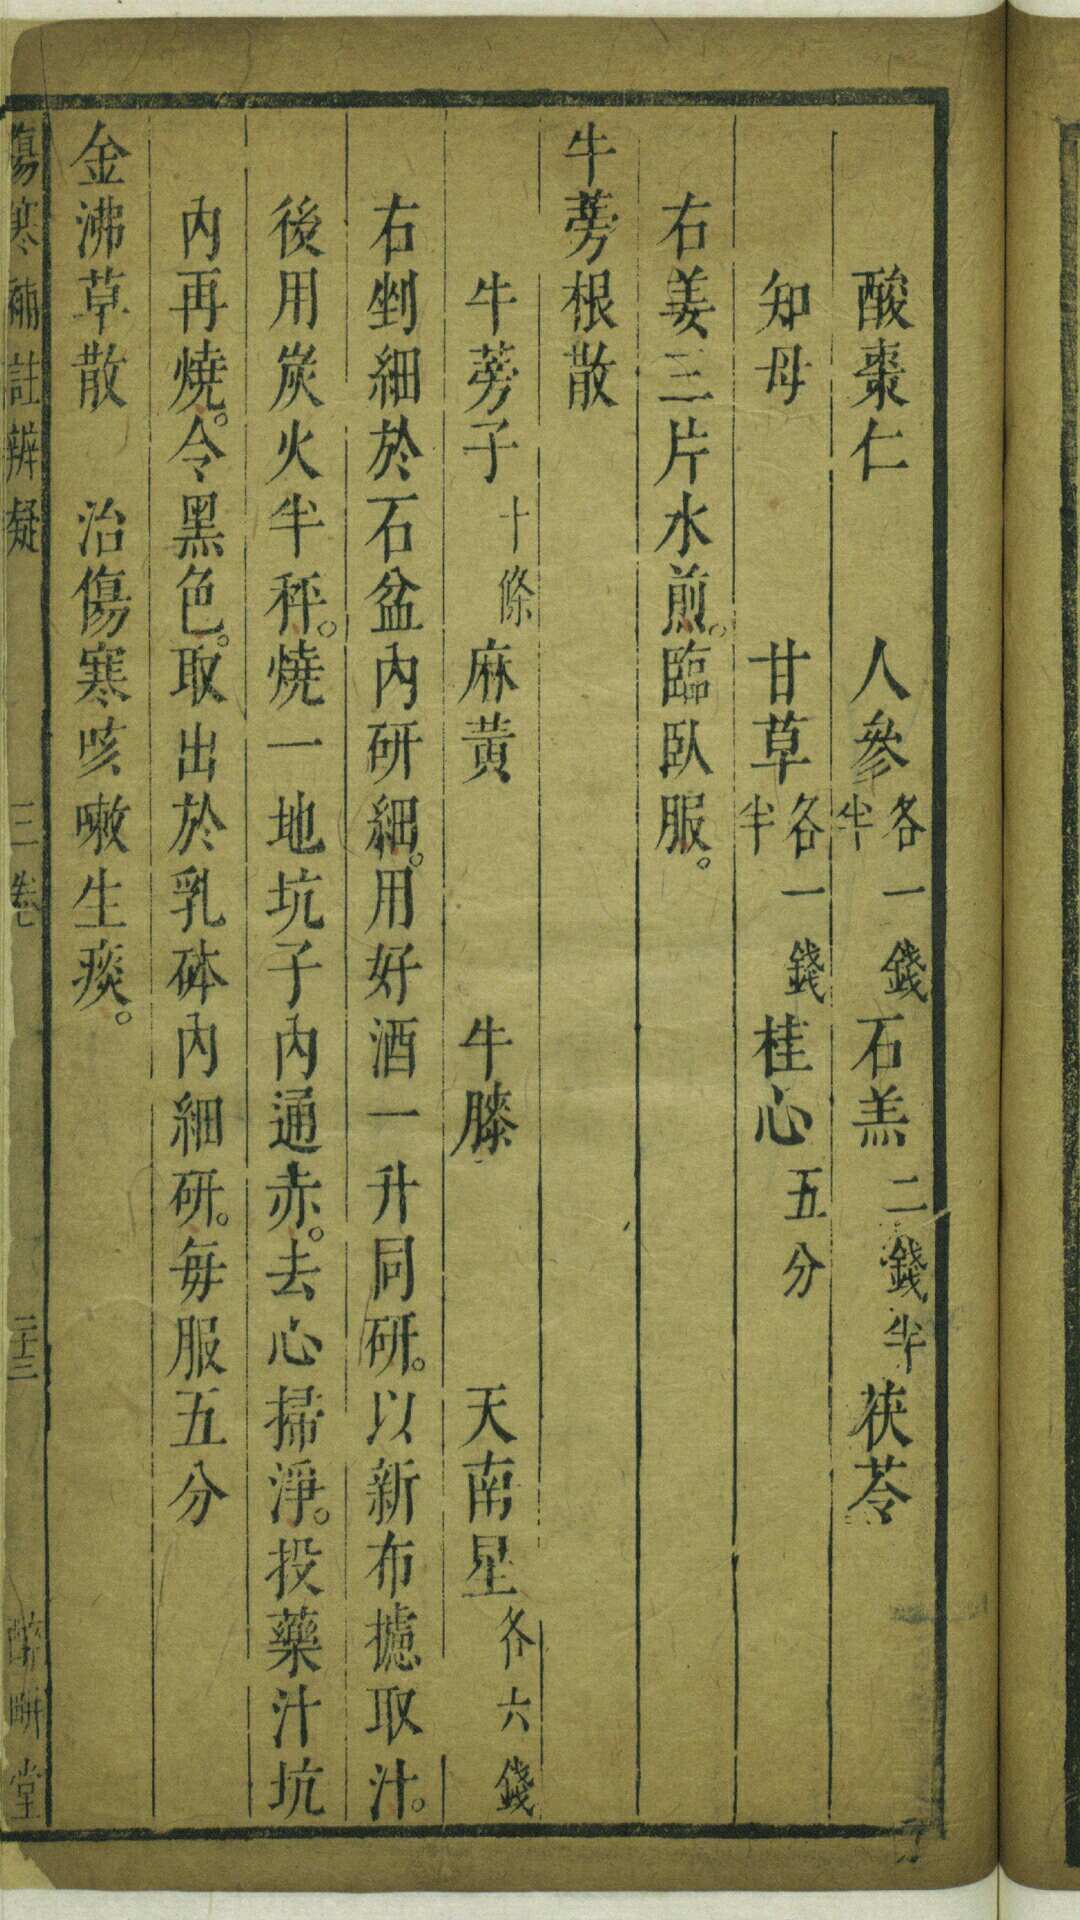 酸棗仁　人參各一錢半　石羔二錢半　茯苓
知母　甘草各一錢半　桂心五分
右姜三片水煎。臨臥服。
牛蒡根散
牛蒡子十條　麻黃　牛膝　天南星各六錢
右剉細於石盆內研細。用好酒一升同研。以新布摅取汁。
後用炭火半秤。燒一地坑子內通赤。去心掃淨。投藥汁坑
內再燒。令黑色。取出於乳砵內細研。每服五分
金沸草散　治傷寒咳嗽生痰。
傷寒補註辨疑　三卷　二十三　堂